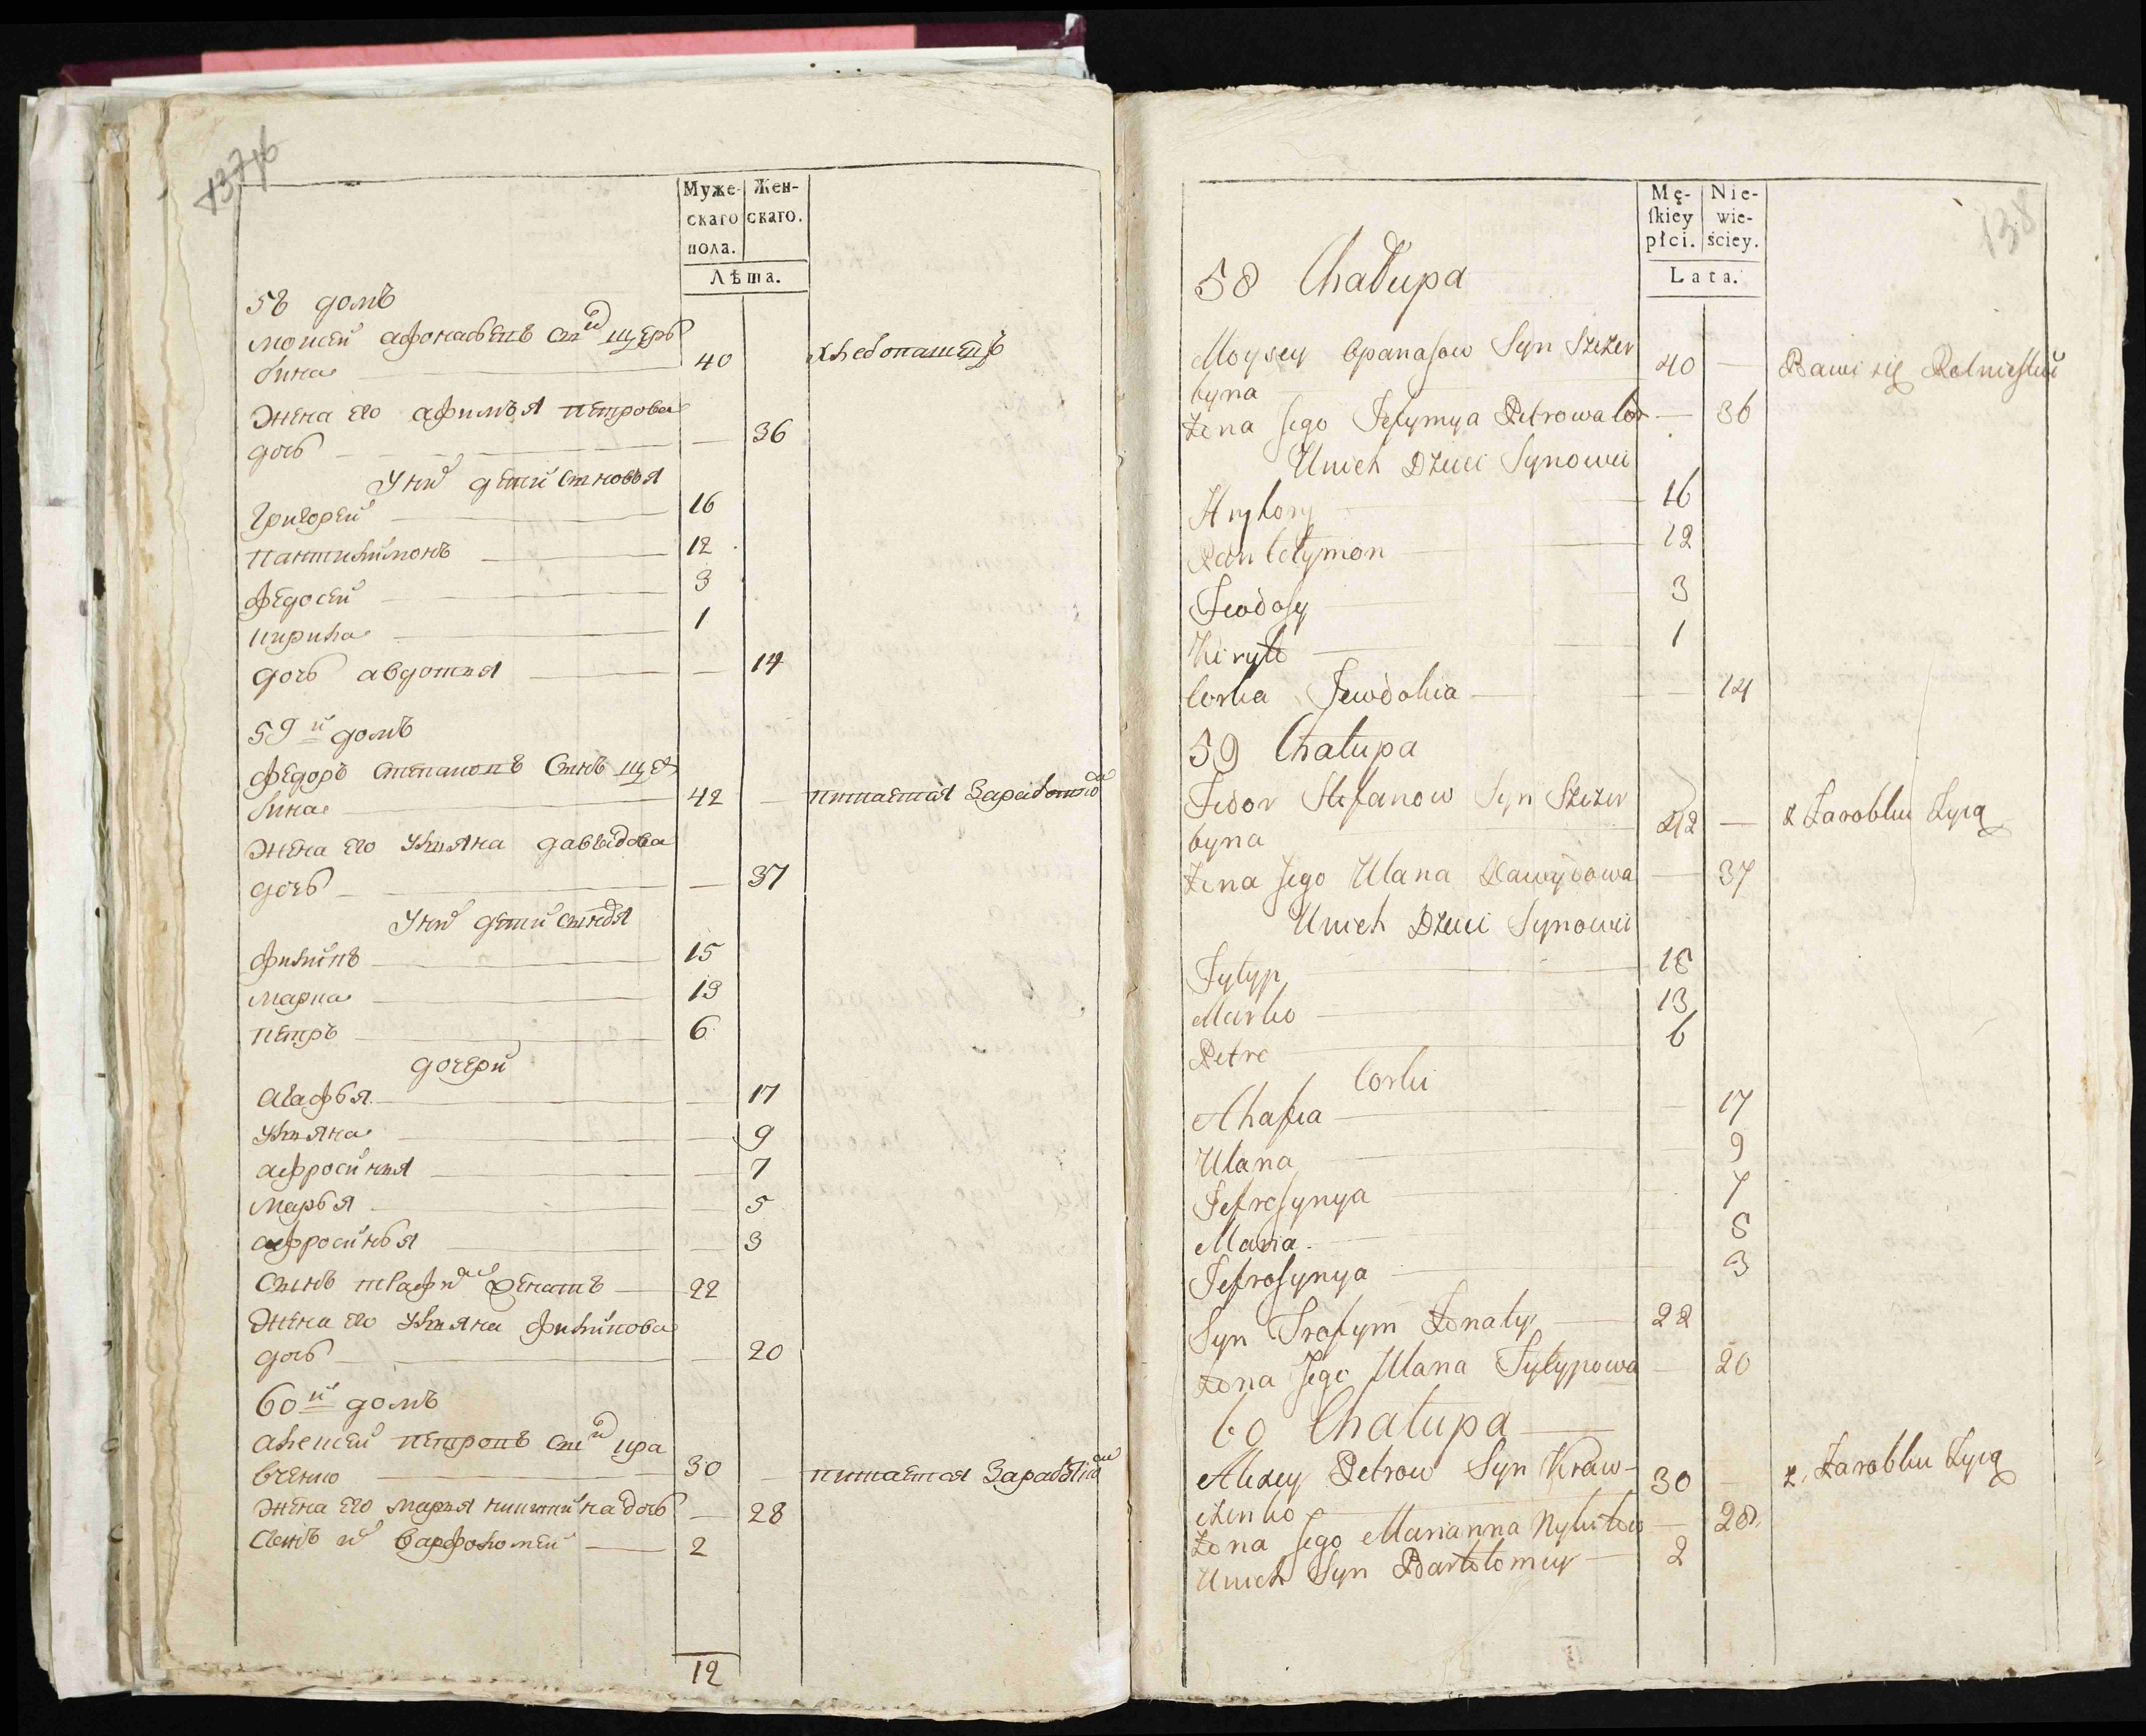 Муже- Жен-
скаго скаго.
пола.
Лѣта.
58 домъ
моисей афонасьевъ сынъ щерб
бина 40 хлебопашецъ
жена его афимья петрова
дочь — 36
У них детей сыновья
Григорей 16
пантилимонъ 12
федосей 3
кирила 1
дочь авдотья — 14
59й домъ
федоръ степановъ сынъ щер
бина 42 — питается Заработкою
жена его ульяна давыдова
дочь — 37
У них детей сыновья
филипъ 15
марка 13
петръ 6
дочери
агафья — 17
ульяна — 9
афросинья — 7
марья — 5
афросинья — 3
Сынъ трафим женатъ 22
жена его ульяна филипова
дочь — 20
60й домъ
алексей петровъ сынъ кра
вченко 30 — питается Заработкою
жена его марья никитина дочь — 28
Сынъ их варфоломей 2
12
138
Mę- Nie-
ſkiey wie-
płci. ściey.
Lata.
58 Chałupa
Moysey Opanasow Syn Szczer
byna 40 — Bawi się Rolnictwem
Żona Jego Jefymya Petrowa Cor — 36
U nich Dzieci Synowie
Hryhory 16
Pantelymon 12
Feodosy 3
Kiryło 1
Corka Jewdokia — 14
59 Chałupa
Fedor Stefanow Syn Szczer
byna 42 — z Zarobku Żyią
Żona Jego Ulana Dawydowa — 37
U nich Dzieci Synowie
Fylyp 15
Marko 13
Petro 6
Corki
Ahafia — 17
Ulana 9
Jefrosynya 7
Maria 5
Jefrosynya 3
Syn Trofym Żonaty 22
Żona Jego Ulana Fylypowa — 20
60 Chałupa
Alexey Petrow Syn Kraw-
czenko 30 z Zarobku Żyią
Żona Jego Marianna Nykitow — 28
U nich Syn Bartłomiey 2